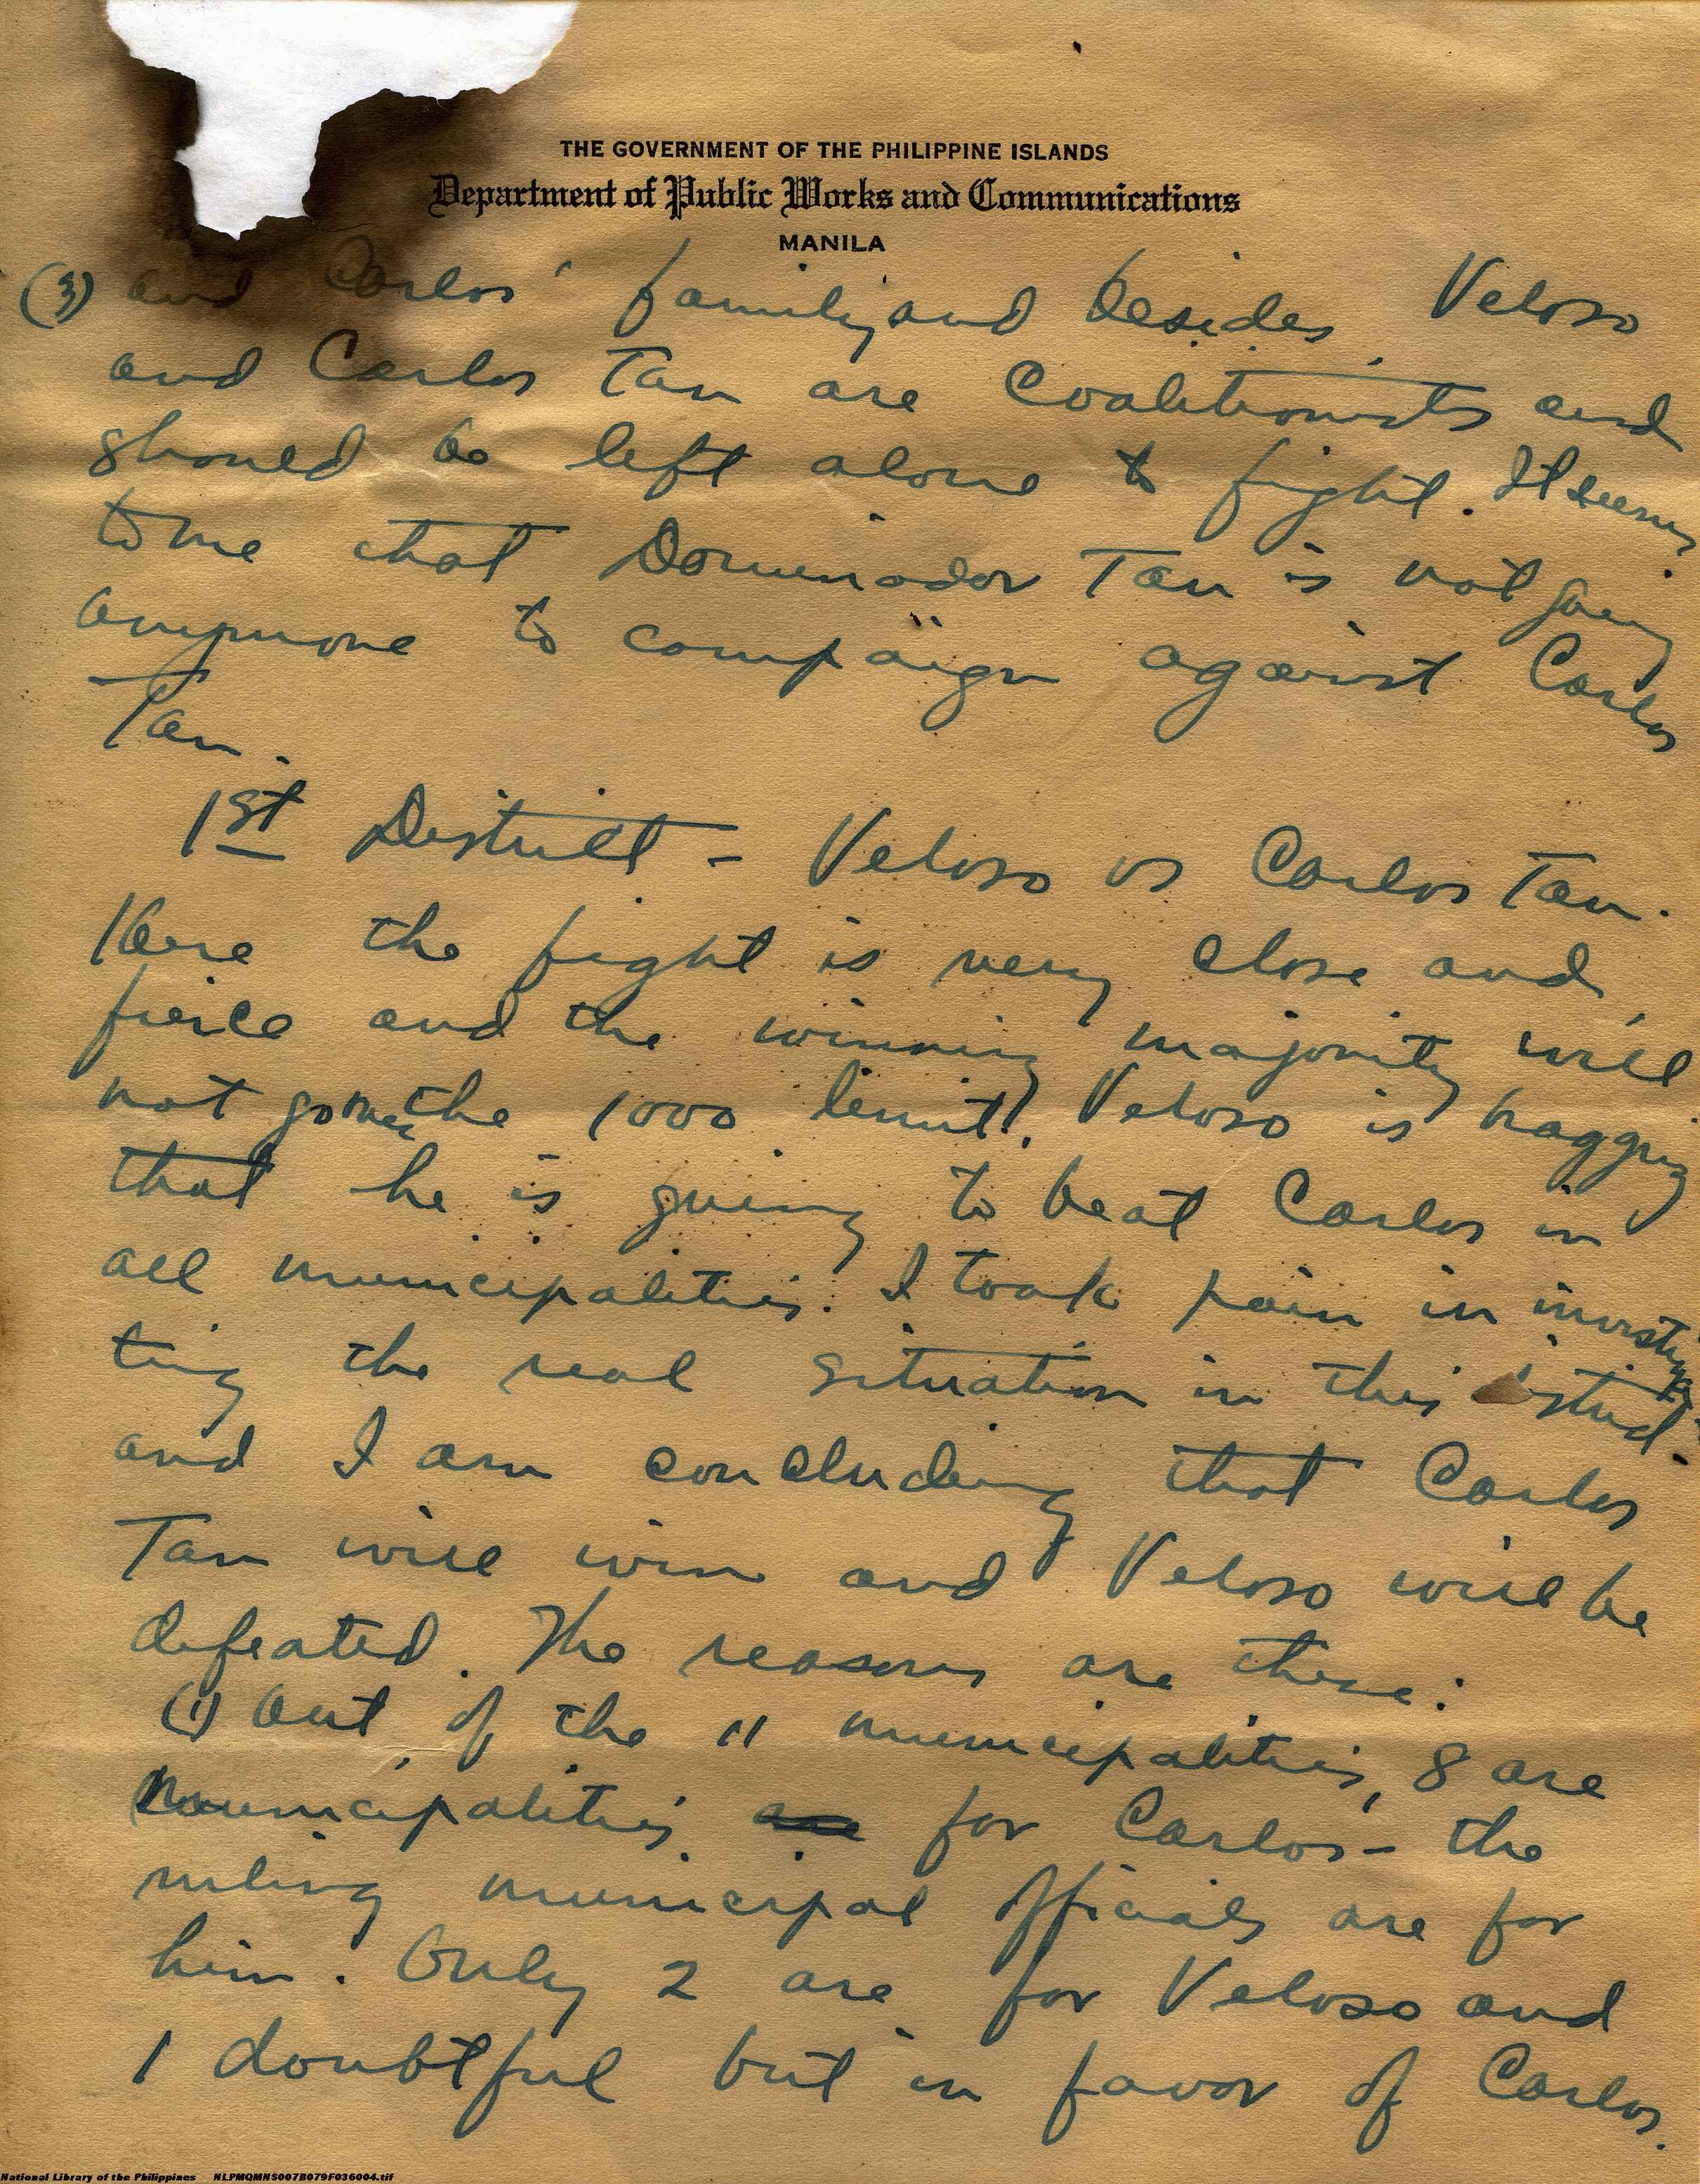 THE GOVERNMENT OF THE PHILIPPINE ISLANDS
Department of Public Works and Communications
MANILA
(3) and Carlos' family, and besides, Veloso
and Carlos Tan are Coalitionists and
should be left alone to fight. It seems
to me that Dominador Tan is not going
anymore to campaign against Carlos
Tan.
1st District - Veloso vs Carlos Tan.
Here the fight is very close and
fierce and the winning majority will
not go over the 1000 limit. Veloso is bragging
that he is going to beat Carlos in
all municipalities. I took pain in investiga
ting the real situation in this district
and I am concluding that Carlos
Tan will win and Veloso will be
defeated. The reasons are these:
(1) Out of the 11 municipalities, 8 are
municipalities are for Carlos - the
ruling municipal officials are for
him. Only 2 are for Veloso and
1 doubtful but in favor of Carlos.
National Library of the Philippines NLPMQMNS007B079F036004.tif